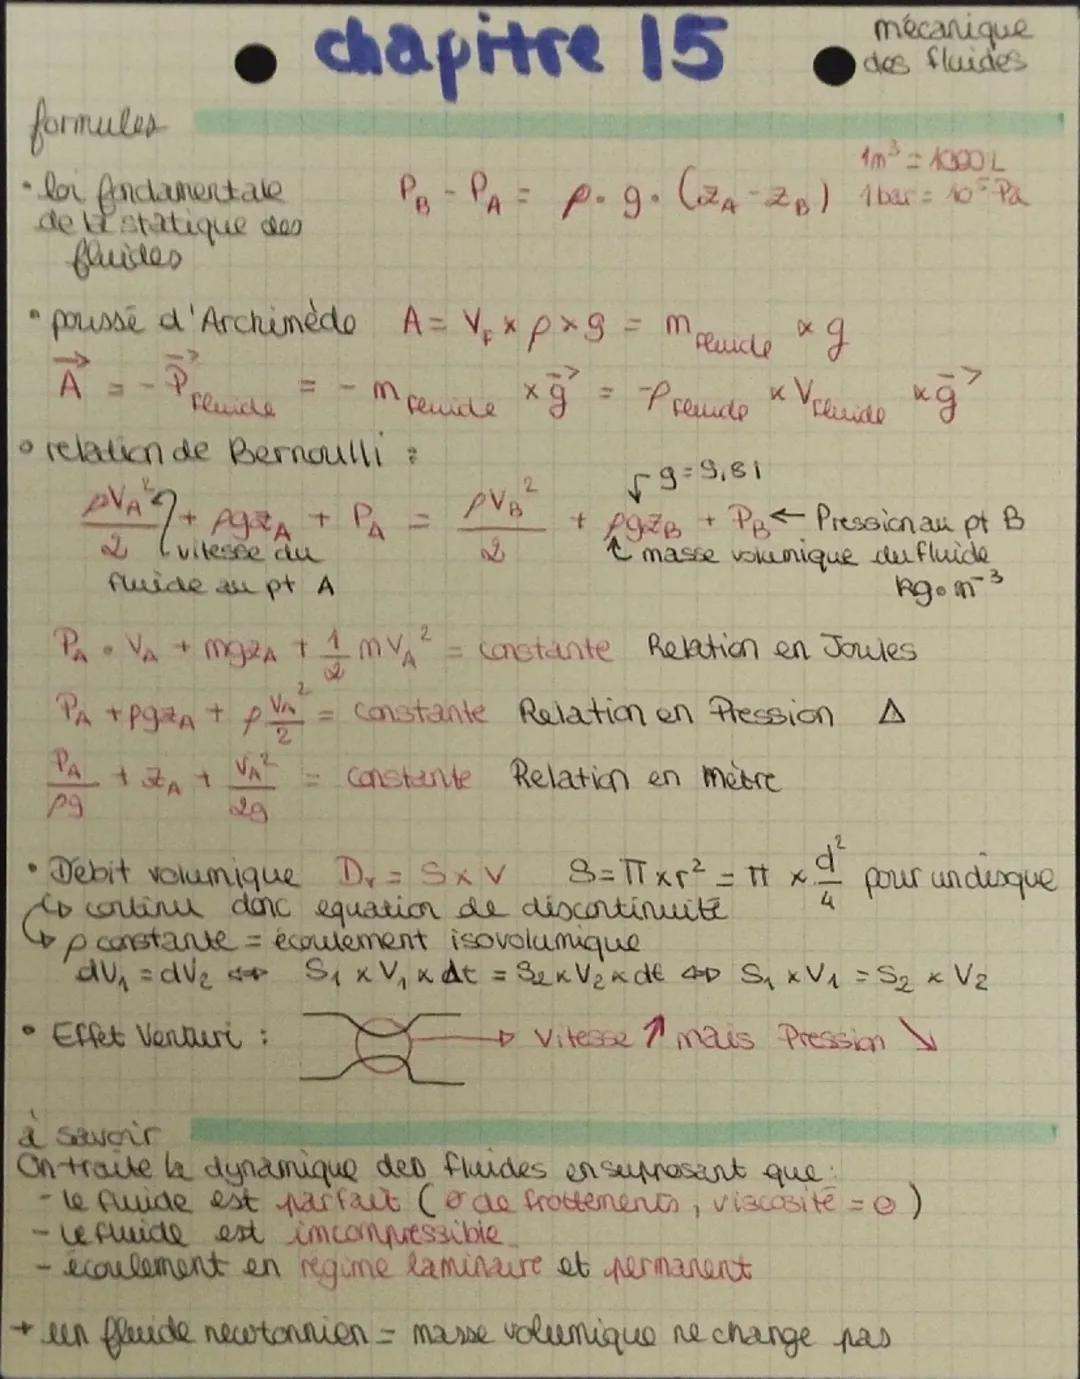 chapitre 15
mécanique
des fluides
formules
1m³ = 1000L
• loi fondamentale
de la statique des
fluides
P_B - P_A = ρ . g . (z_A - z_B)
1 bar = 10⁵ Pa
• poussé d'Archimède A = V_F × ρ × g = m_fluide × g
A⃗ = - P⃗_fluide = - m_fluide × g⃗ = -ρ_fluide × V_fluide × g⃗
• relation de Bernoulli :
g = 9,81
ρV_A²/2 + ρgz_A + P_A = ρV_B²/2 + ρgz_B + P_B ← Pression au pt B
vitesse du
fluide au pt A
masse volumique du fluide
kg.m⁻³
P_A . V_A + mgz_A + 1/2 mV_A² = constante Relation en Joules
P_A + ρgz_A + ρ V_A²/2 = constante Relation en Pression Δ
P_A/ρg + z_A + V_A²/2g = constante Relation en mètre
• Débit volumique D_v = S × V S = π × r² = π × d²/4 pour un disque
↳ continu donc equation de discontinuité
↳ ρ constante = écoulement isovolumique
dV₁ = dV₂ ⇔ S₁ × V₁ × Δt = S₂ × V₂ × dt ⇔ S₁ × V₁ = S₂ × V₂
• Effet Venturi : → Vitesse ↗ mais Pression ↘
à savoir
On traite la dynamique des fluides en supposant que :
- le fluide est parfait (∅ de frottements, viscosité = 0)
- le fluide est imcompressible
- écoulement en régime laminaire et permanent
+ un fluide newtonnien = masse volumique ne change pas